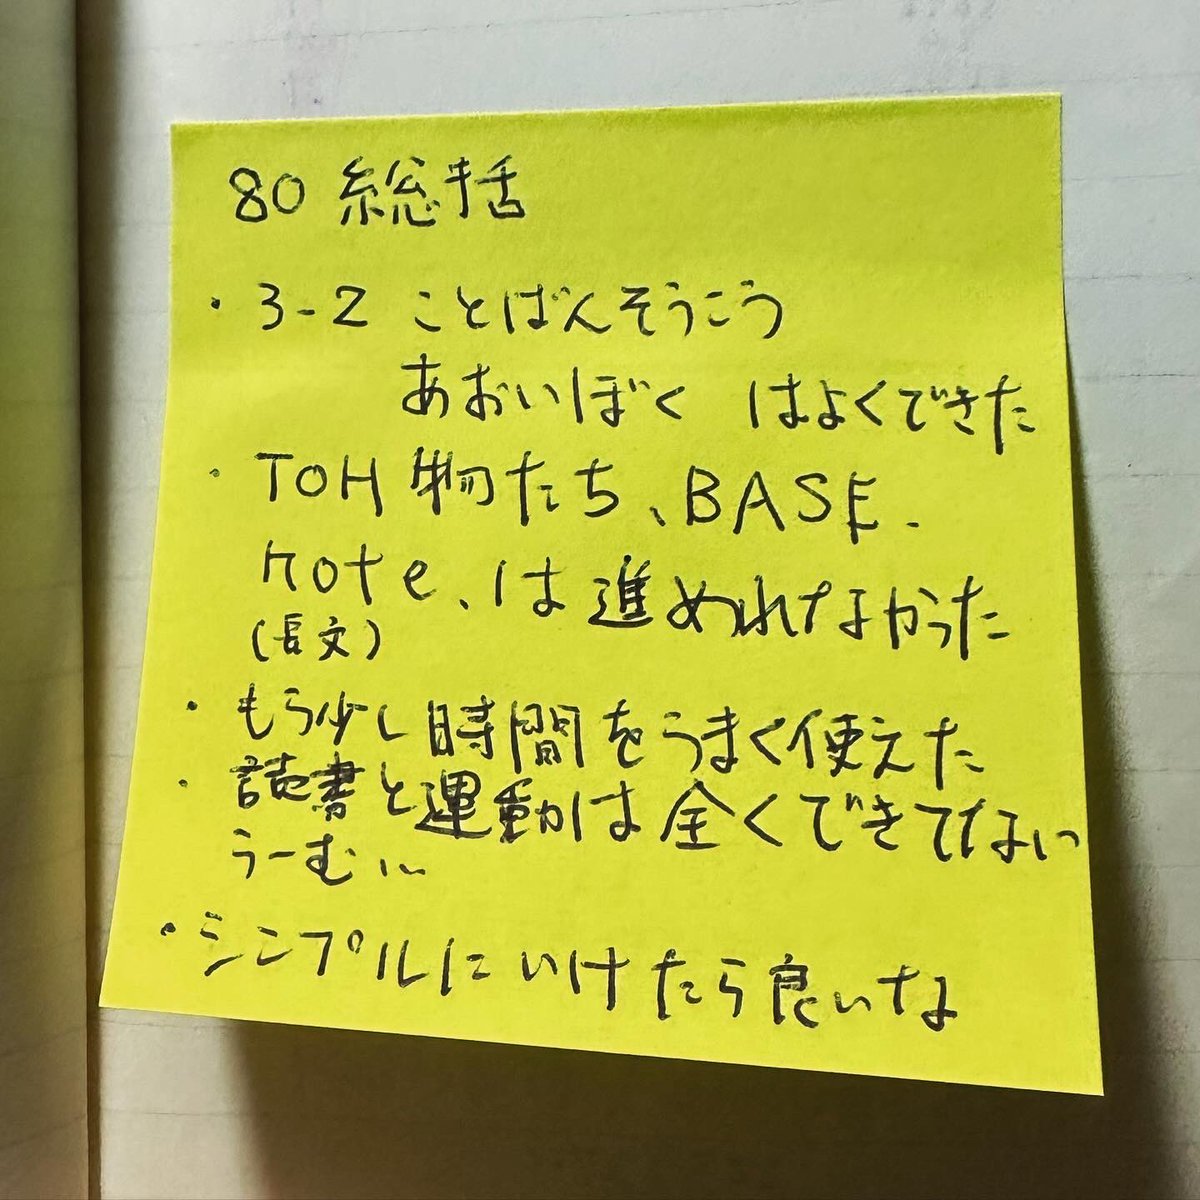 80 総括
・3-2 ことばんそうこう
あおいぼく はよくできた
・TOH物たち、BASE、
note、は進めれなかった
(長文)
・もう少し時間をうまく使えた
・読書と運動は全くできてない
うーむ…
・シンプルにいけたら良いな